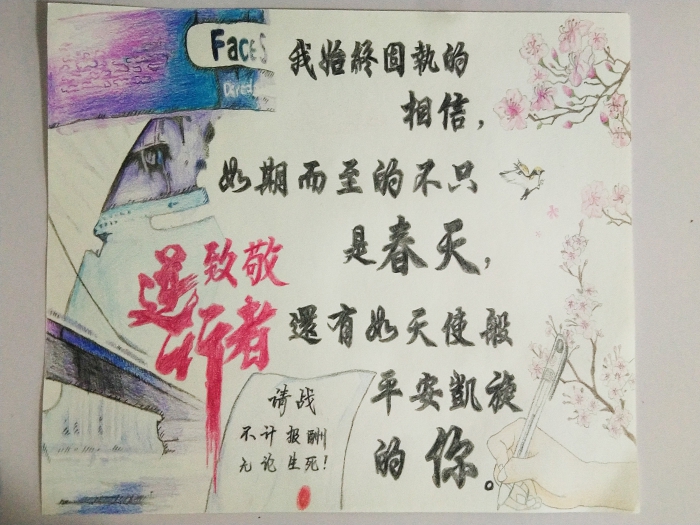 Face S
我始終固執的
相信，
如期而至的不只
是春天，
還有如天使般
平安凱旋
的你。
致敬
逆行者
请战
不计报酬
无论生死！